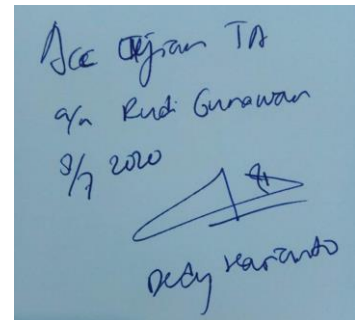 Acc Ujian TA
a/n Rudi Gunawan
8/7 2020
Dedy Harianto